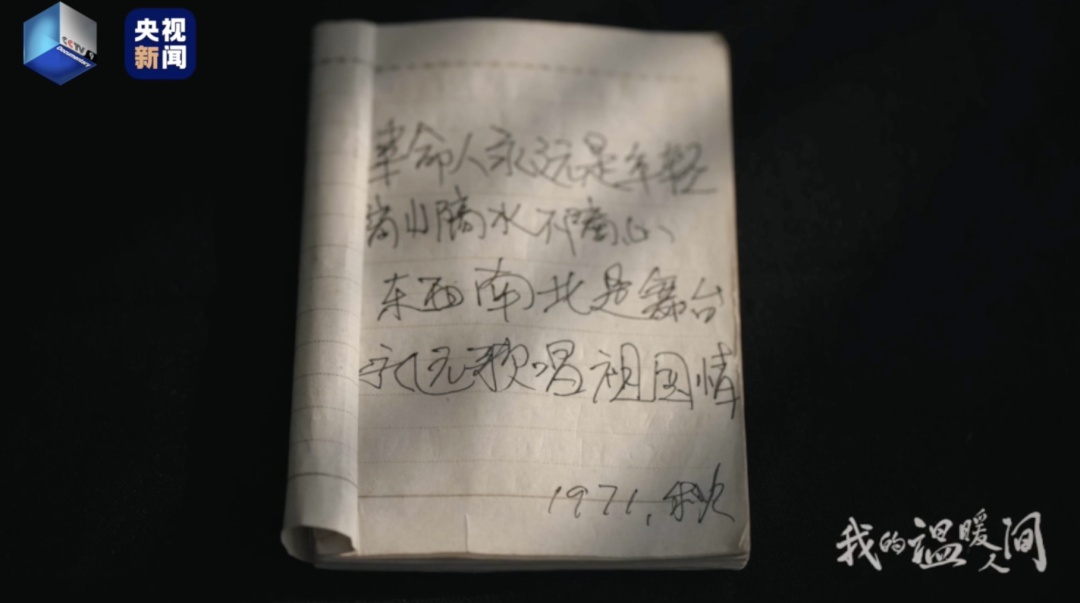 CCTV 9
Documentary
央视
新闻
革命人永远是年轻
离山隔水不离心
东西南北是舞台
永远歌唱祖国情
1971.秋
我的温暖人间